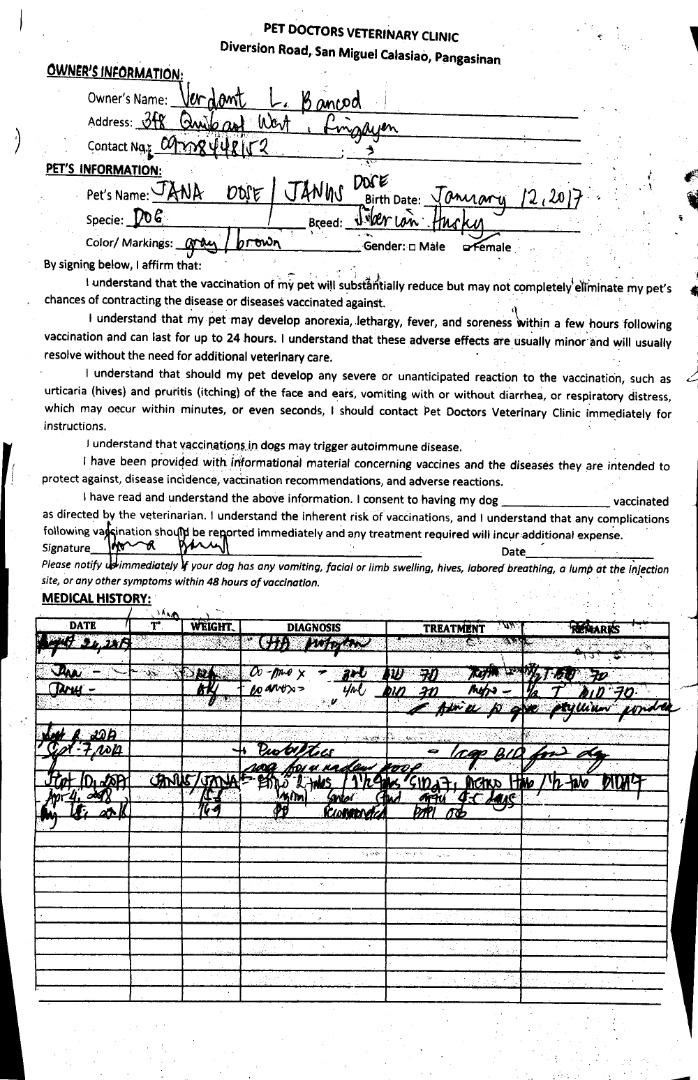 PET DOCTORS VETERINARY CLINIC
Diversion Road, San Miguel Calasiao, Pangasinan
OWNER'S INFORMATION:
Owner's Name: Verdant L. Bancod
Address: 348 West, Lingayen
Contact No.:
PET'S INFORMATION:
Pet's Name: JANA DOSE / JANUS DOSE Birth Date: January 12, 2017
Specie: DOG Breed: Siberian Husky
Color/ Markings: gray / brown Gender: □ Male □ Female
By signing below, I affirm that:
I understand that the vaccination of my pet will substantially reduce but may not completely eliminate my pet's
chances of contracting the disease or diseases vaccinated against.
I understand that my pet may develop anorexia, lethargy, fever, and soreness within a few hours following
vaccination and can last for up to 24 hours. I understand that these adverse effects are usually minor and will usually
resolve without the need for additional veterinary care.
I understand that should my pet develop any severe or unanticipated reaction to the vaccination, such as
urticaria (hives) and pruritis (itching) of the face and ears, vomiting with or without diarrhea, or respiratory distress,
which may occur within minutes, or even seconds, I should contact Pet Doctors Veterinary Clinic immediately for
instructions.
I understand that vaccinations in dogs may trigger autoimmune disease.
I have been provided with informational material concerning vaccines and the diseases they are intended to
protect against, disease incidence, vaccination recommendations, and adverse reactions.
I have read and understand the above information. I consent to having my dog ____________ vaccinated
as directed by the veterinarian. I understand the inherent risk of vaccinations, and I understand that any complications
following vaccination should be reported immediately and any treatment required will incur additional expense.
Signature Date
Please notify us immediately if your dog has any vomiting, facial or limb swelling, hives, labored breathing, a lump at the injection
site, or any other symptoms within 48 hours of vaccination.
MEDICAL HISTORY:
DATE T° WEIGHT DIAGNOSIS TREATMENT REMARKS
August 2017
Jana - BID 7D BID 7D
Janus - BID 7D Metro - 1/2 T BID 7D
to give psyllium powder
Sept 2017
Sept. 7, 2017 + Probiotics - 1 cap BID
Sept 10, 2017 JANUS/JANA
Apr 4, 2018 days
16.9 recommended